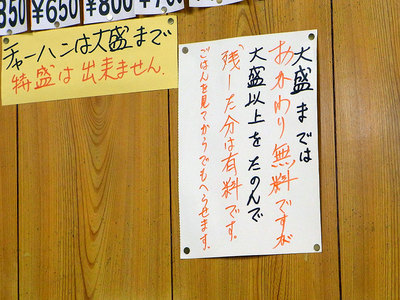 350
¥650
¥800
チャーハンは大盛まで
特盛は出来ません.
大盛までは
おかわり無料ですが
大盛以上をたのんで
残した分は有料です。
ごはんを見てからでもへらせます。